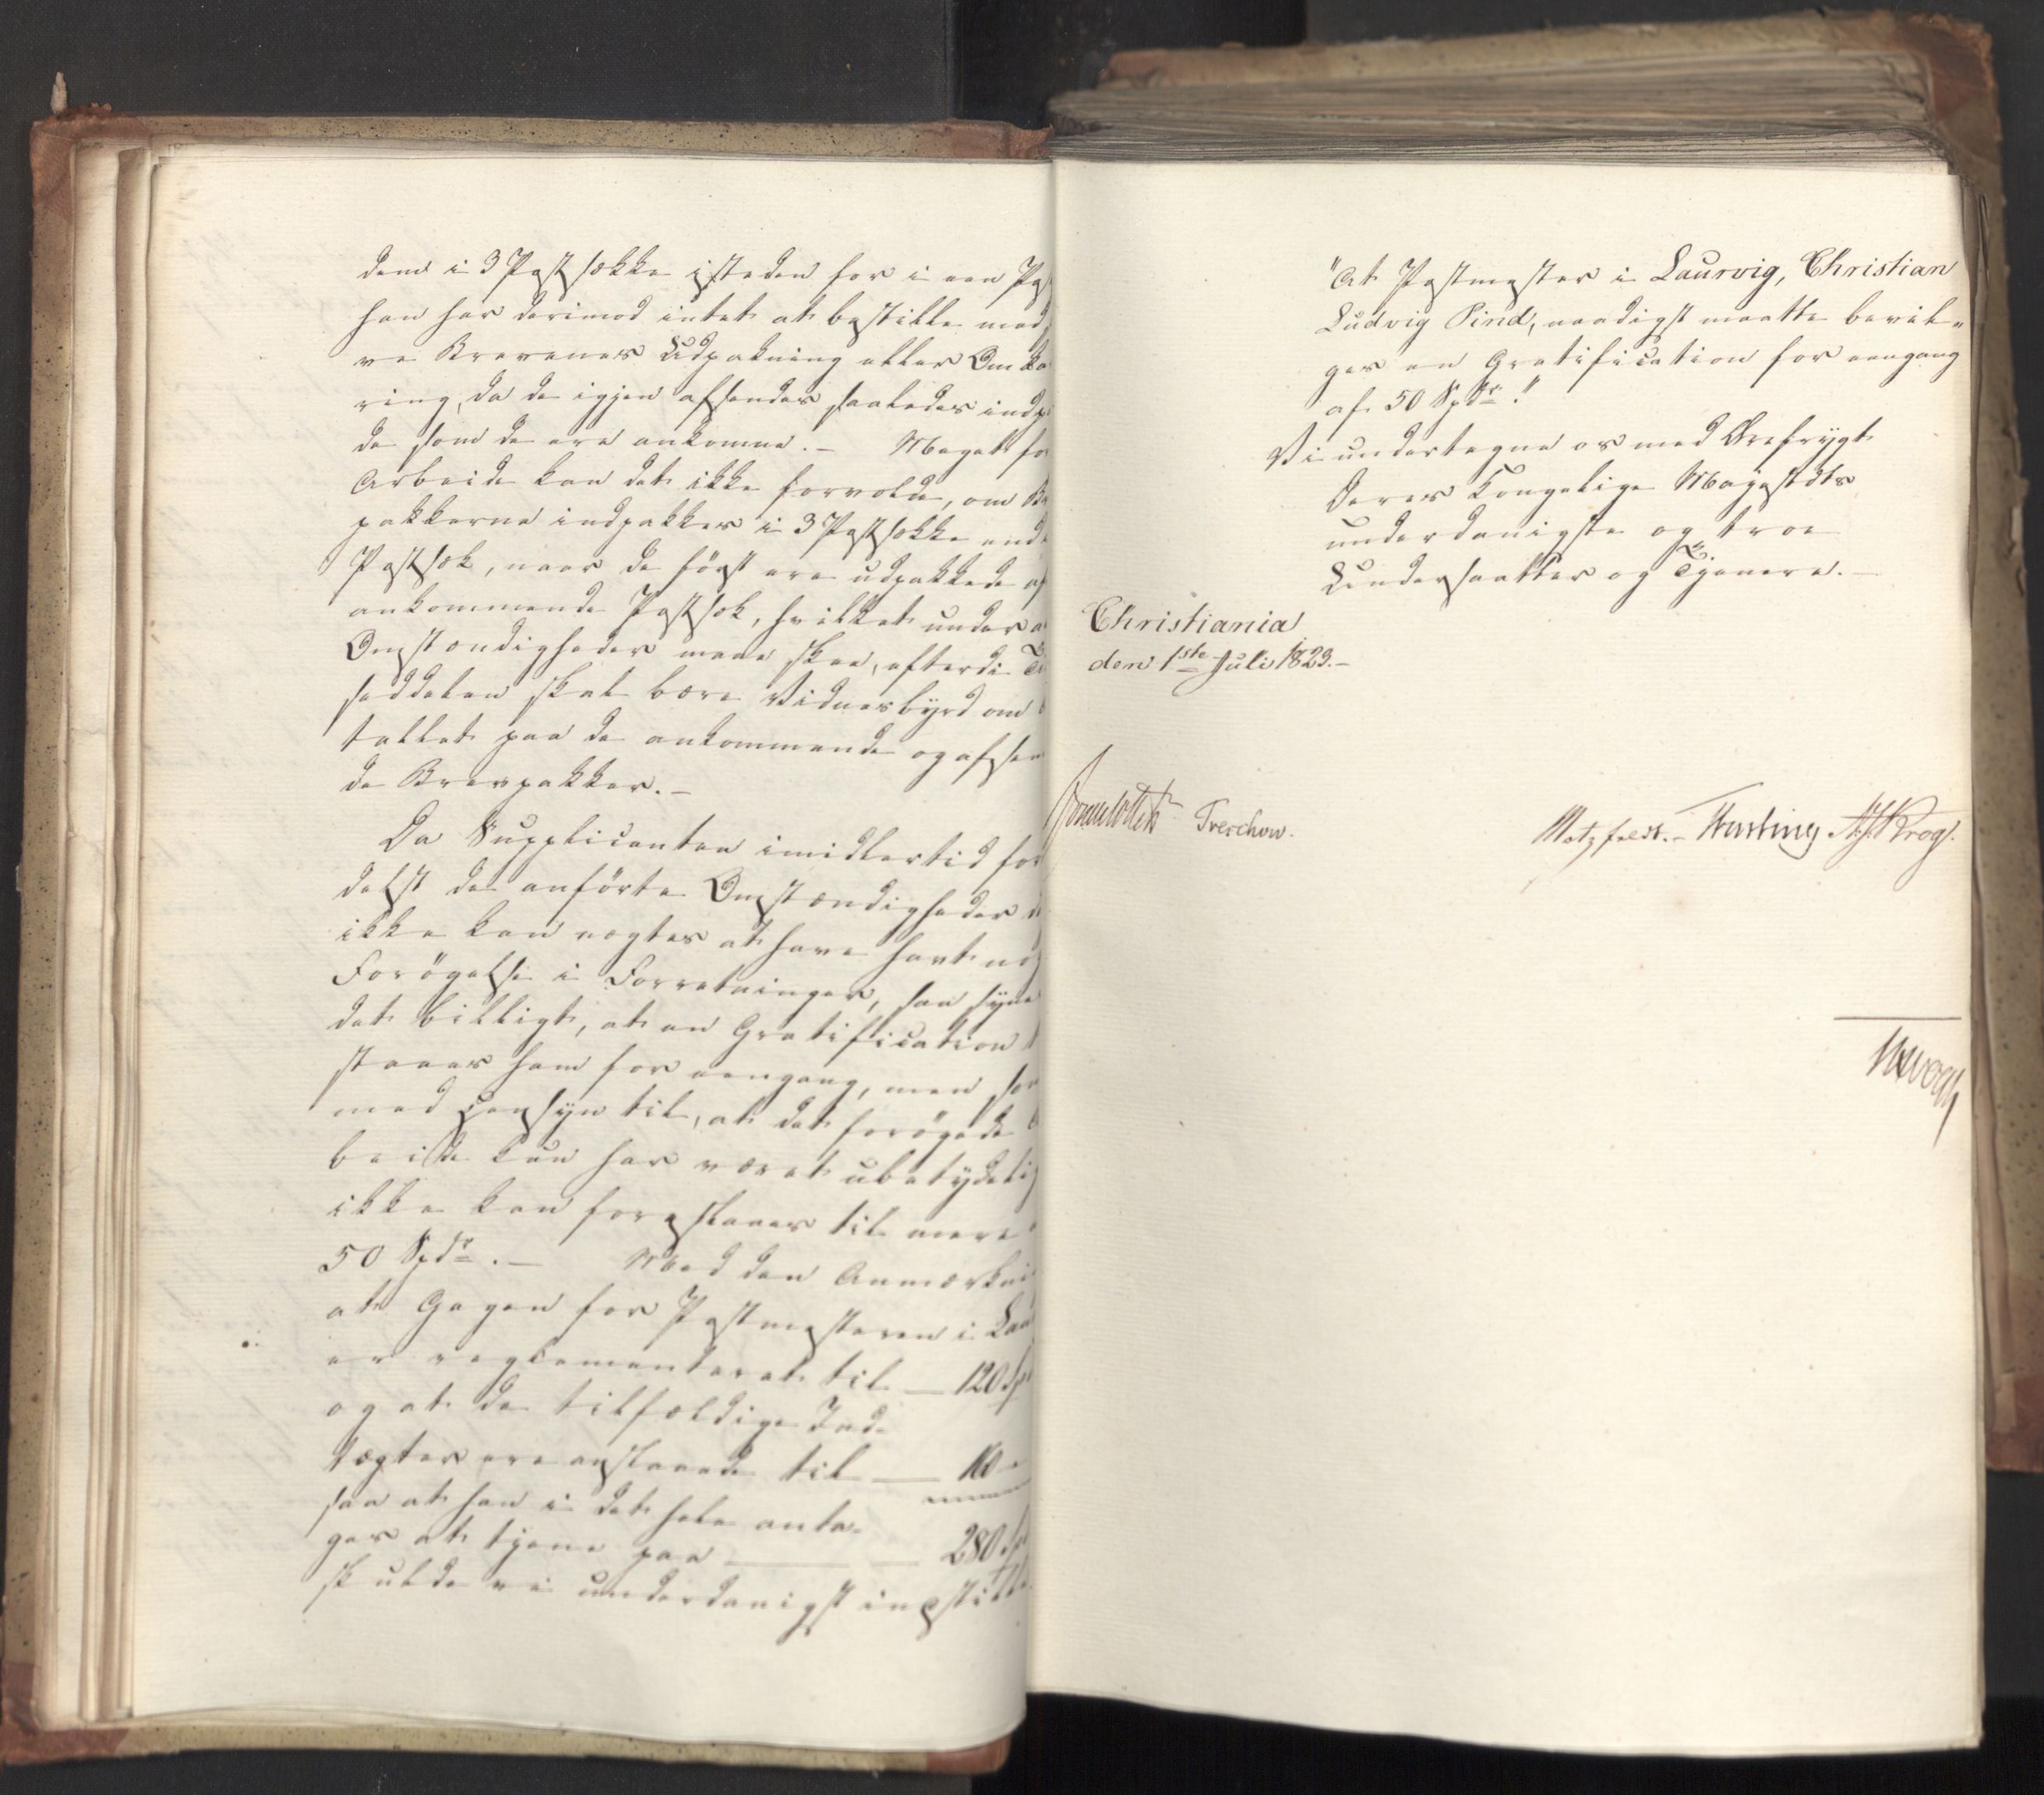 dem i 3 Postsække istedenfor i een Po
han har derimod intet at bestille med
re Brevenes Udpakning eller Omka
ring, da de igjen afsendes saaledes indp
de som de ere ankomne. – Meget for
Arbeide kan det ikke forvolde, om Br
pakkerne indpakkes i 3 Postsække end
Postsæk, naar de først ere udpakkede af
ankommende Postsæk, hvilket under a
Omstændigheder maae skee, efterdi Ti
seddelen skal bære Vidnesbyrd om
tallet paa de ankommende og afsen
de Brevpakker. –
Da Supplicanten imidlertid for
delst de anførte Omstændigheder
ikke kan nægtes at have havt no
Forøgelse i Forretninger, saa syne
det billigt, at en Gratification
staaes ham for eengang, men som
med Hensyn til, at det forøgede A
beide kun har været ubetydelig
ikke kan foreslaaes til mere
50 Spdr. – Med den Anmærkni
at Gagen for Postmesteren i Lau
er reglementeret til — 120 Sp
og at de tilfældige Ind-
tægter ere anslaaede til — 160 –
saa at han i det hele anta-
ges at tjene paa — 280 Sp
skulde vi underdanigst indstille
"At Postmester i Laurvig, Christian
Ludvig Pind, naadigst maatte bevil-
ges en Gratification for eengang
af 50 Spdr."
Vi undertegne os med Ærefrygt
Deres Kongelige Majestæts
underdanigste og troe
Undersaatter og Tjenere. –
Christiania
den 1ste Juli 1823. –
Treschow.
Motzfeldt. – Krog.